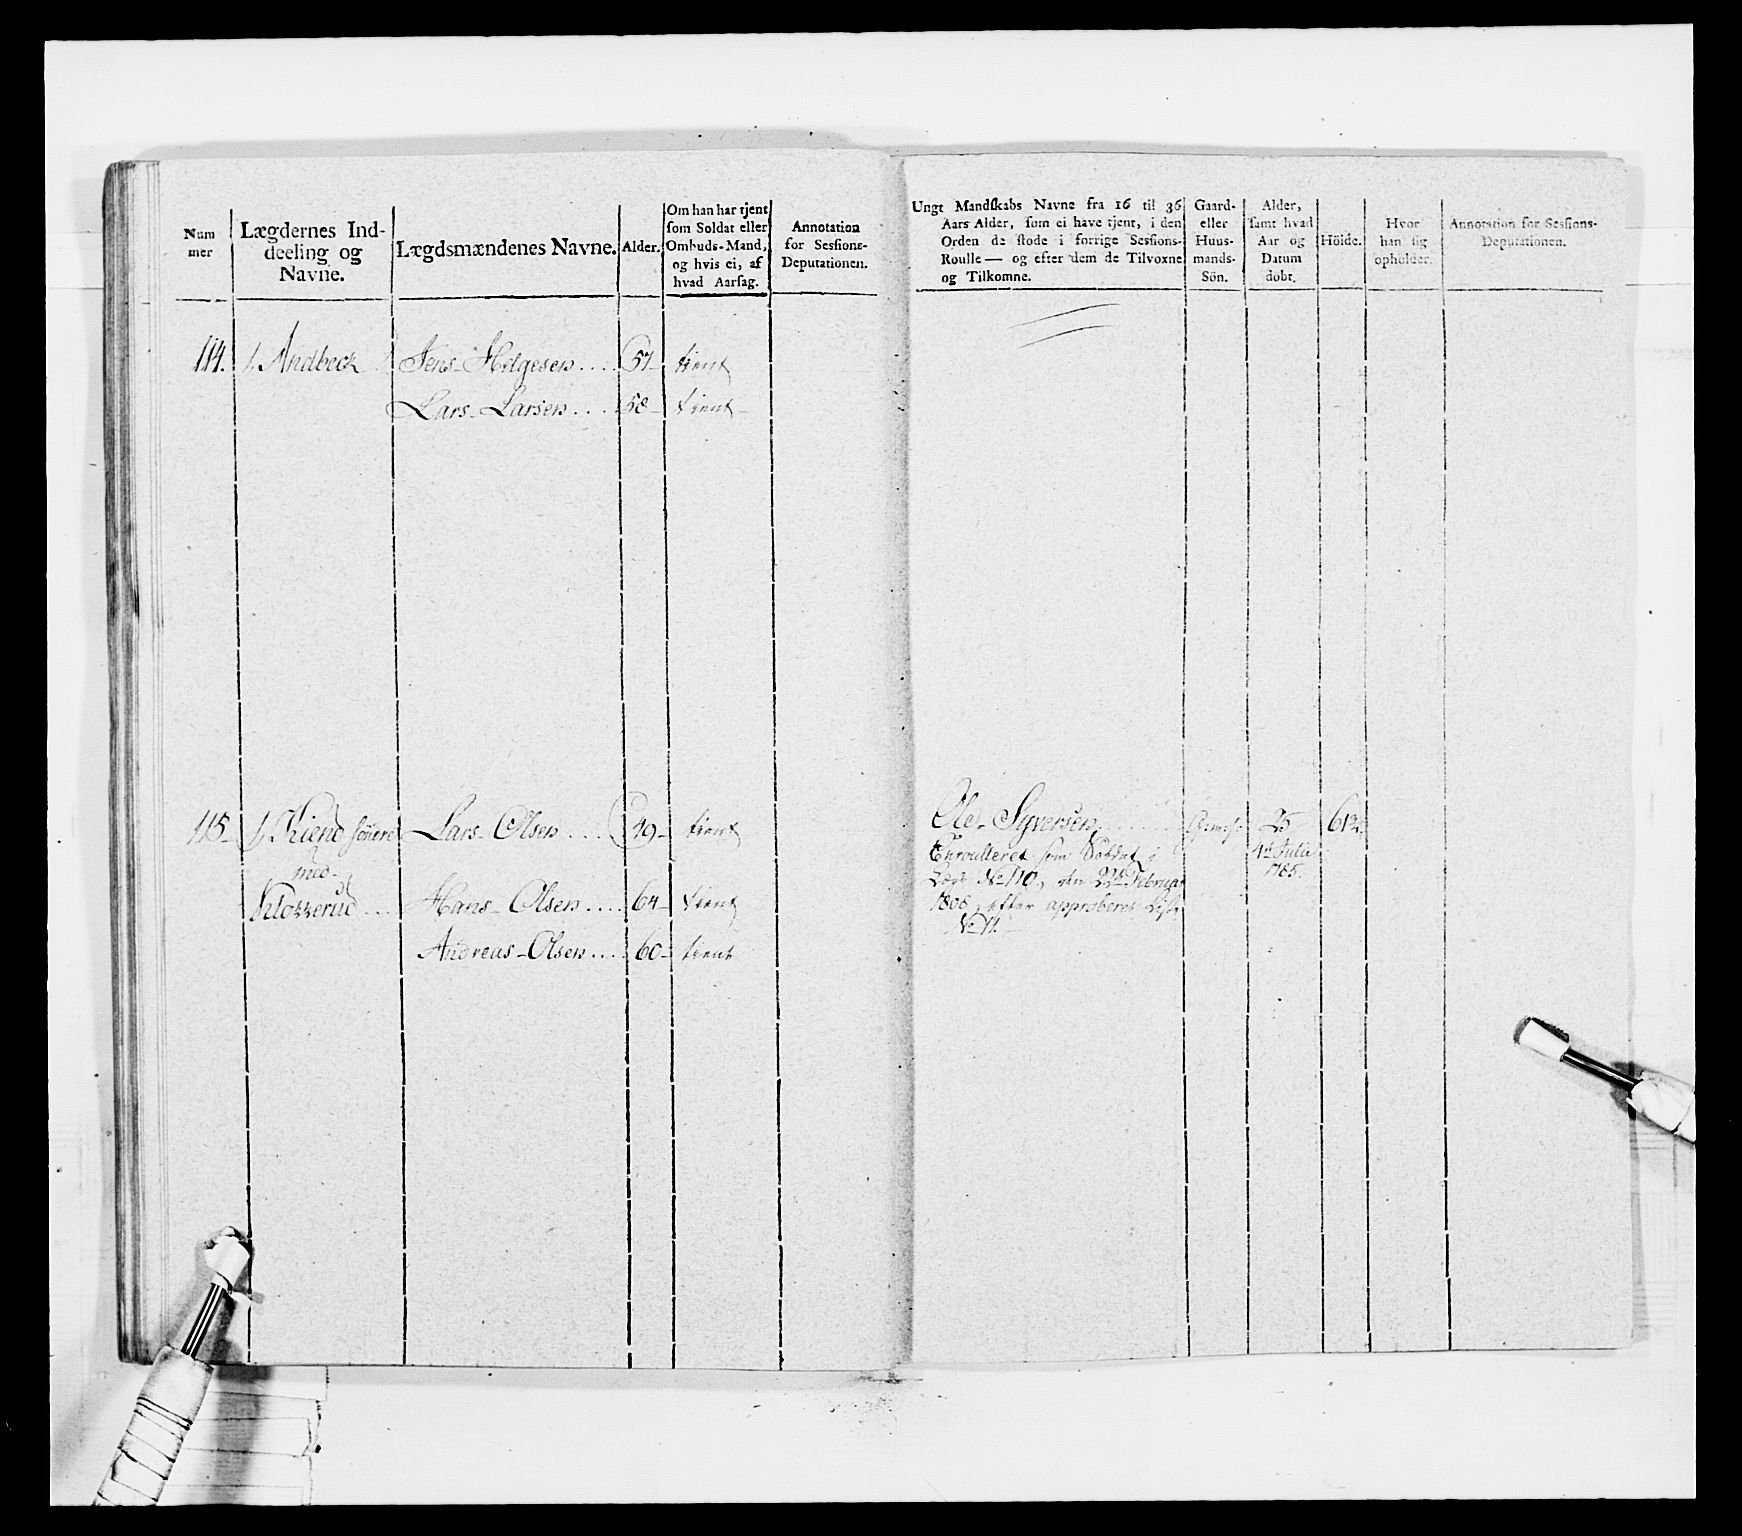 Num
mer
Lægdernes Ind-
deeling og
Navne.
Lægdsmændenes Navne.
Alder.
Om han har tjent
som Soldat eller
Ombuds-Mand,
og hvis ei, af
hvad Aarsag.
Annotation
for Sessions-
Deputationen.
Ungt Mandskabs Navne fra 16 til 36
Aars Alder, som ei have tjent, i den
Orden de stode i forrige Sessions-
Roulle — og efter dem de Tilvoxne
og Tilkomne.
Gaard-
eller
Huus-
mands-
Sön.
Alder,
samt hvad
Aar og
Datum
döbt.
Höide.
Hvor
han sig
opholder.
Annotation for Sessions-
Deputationen.
114. 1. Andbeck Jens Helgesen .... 57 tient
Lars Larsen .... 58 tient
115 1, Kiend søndre Lars Olsen .... 49 tient
med
Klokkerud ... Hans Olsen .... 64 tient
Andreas Olsen .... 60 tient
Ole Syversen 25 61 2/4
Enroulleret som Soldat i 4de Julii
Lægd No 110, den 22de Februar 1785.
1808, efter approberet Liste
No 11.